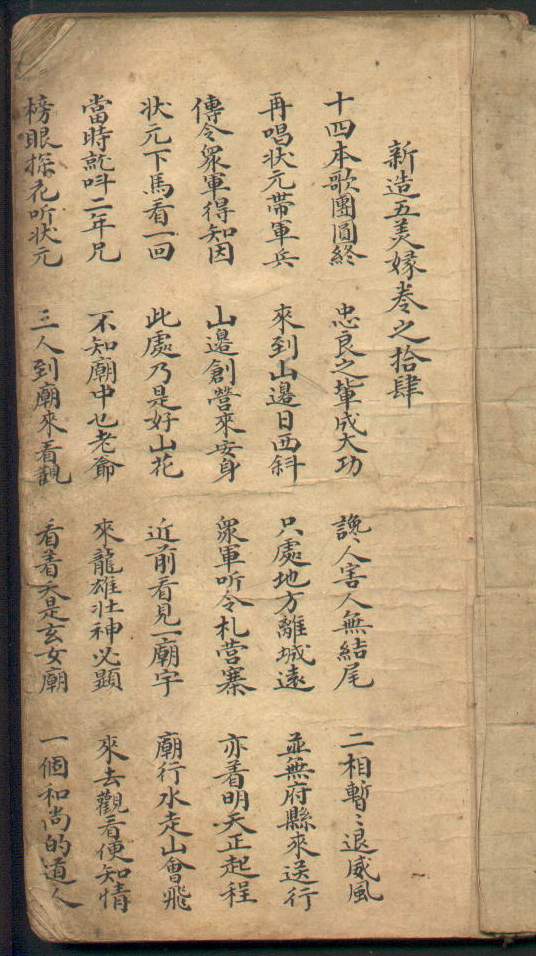 新造五美缘卷之拾肆
十四本歌團圓終 忠良之輩成大功 讒人害人無結尾 二相暫〻退威風
再唱状元帶軍兵 來到山邊日西斜 只處地方離城遠 並無府縣來送行
傳令衆軍得知因 山邊創营來安身 衆軍听令札营寨 亦着明天正起程
状元下馬看一回 此處乃是好山花 近前看見一廟宇 廟行水走山會飛
當時就呌二年兄 不知廟中乜老爺 來龍雄壮神必顯 來去觀看便知情
榜眼探花听状元 三人到廟來看觀 看着天是玄女廟 一個和尚的道人